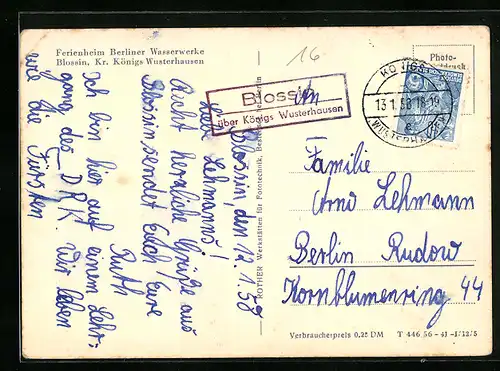 Ferienheim Berliner Wasserwerke
Blossin, Kr. Königs Wusterhausen
16
Photo-
Blossin
über Königs Wusterhausen
KÖNIGS
13.1.58.18-19
WUSTERHAUSEN
Blossin, den 12.1.58
Liebe Lehmanns!
Recht herzliche Grüße aus
Blossin sendet Euch Eure
Ruth
Ich bin hier auf einem Lehr-
gang des DRK. Wir leben
wie die Fürsten.
An
Familie
Arno Lehmann
Berlin Rudow
Kornblumenring 44
ROTHER Werkstätten für Fototechnik, Berlin
Verbraucherpreis 0,25 DM
T 446 56 - 41 - 1/12/5